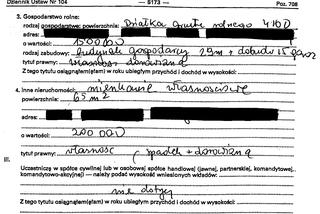 Dziennik Ustaw Nr 104 — 5173 — Poz. 708
3. Gospodarstwo rolne:
rodzaj gospodarstwa: powierzchnia: Działka gruntu rolnego 4100
adres:
o wartości: 150000
rodzaj zabudowy: budynek gospodarczy 29m + dobudowa 15
tytuł prawny: własność darowizna
Z tego tytułu osiągnąłem(ęłam) w roku ubiegłym przychód i dochód w wysokości:
4. Inne nieruchomości: mieszkanie własnościowe
powierzchnia: 65 m2
adres:
o wartości: 200 000
tytuł prawny: własność (spadek + darowizna)
Z tego tytułu osiągnąłem(ęłam) w roku ubiegłym przychód i dochód w wysokości:
III.
Uczestniczę w spółce cywilnej lub w osobowej spółce handlowej (jawnej, partnerskiej, komandytowej,
komandytowo-akcyjnej) — należy podać wysokość wniesionych wkładów:
nie dotyczy
Z tego tytułu osiągnąłem(ęłam) w roku ubiegłym dochód w wysokości: